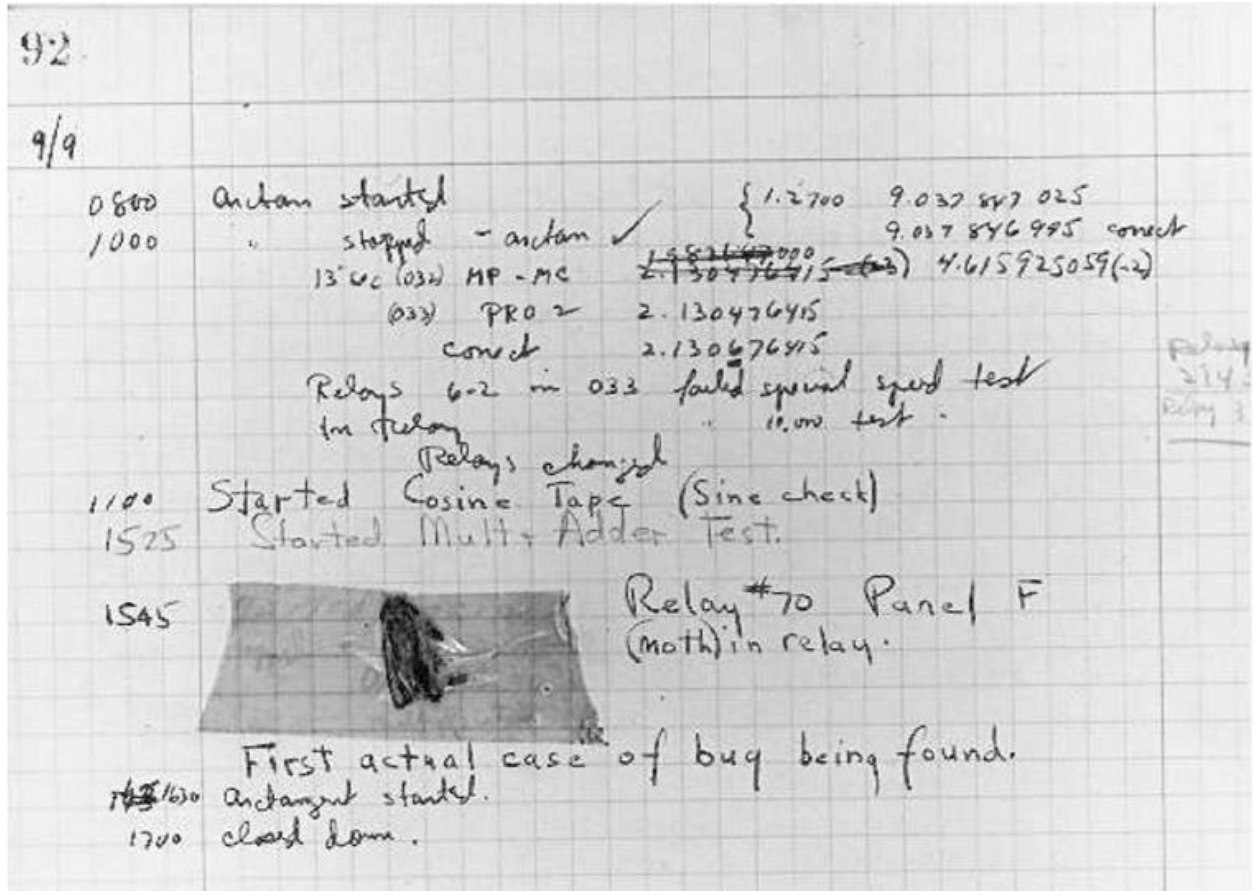 92
9/9
0800 arctan started { 1.2700 9.037 847 025
1000 " stopped - arctan ✓ 9.037 846 995 correct
13"uc (032) MP - MC 1.982647000 2.130476415 (-3) 4.615925059(-2)
(033) PRO 2 2.130476415
correct 2.130676415
Relays 6-2 in 033 failed special speed test
In Relay " 10.000 test .
Relays changed
1100 Started Cosine Tape (Sine check)
1525 Started Mult + Adder Test.
1545 Relay #70 Panel F
(moth) in relay.
First actual case of bug being found.
1630 arctangent started.
1700 closed down.
Relay
Relay 3